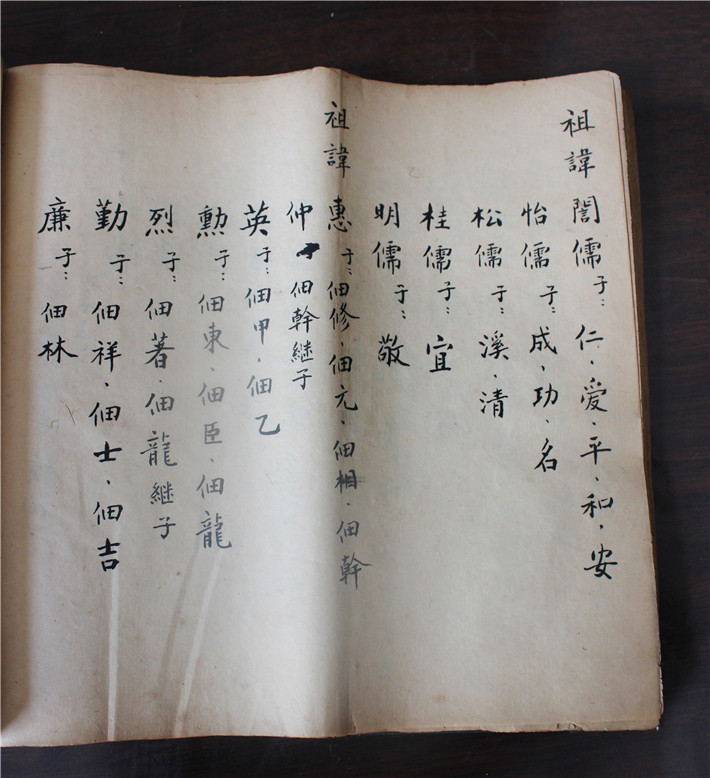 祖諱 誾儒 子：仁、爱、平、和、安
怡儒 子：成、功、名
松儒 子：溪、清
桂儒 子：宜
明儒 子：敬
祖諱 惠 子：佃修、佃元、佃相、佃幹
仲 子 佃幹継子
英 子：佃甲、佃乙
勲 子：佃東、佃臣、佃龍
烈 子：佃著、佃龍継子
勤 子：佃祥、佃士、佃吉
廉 子：佃林